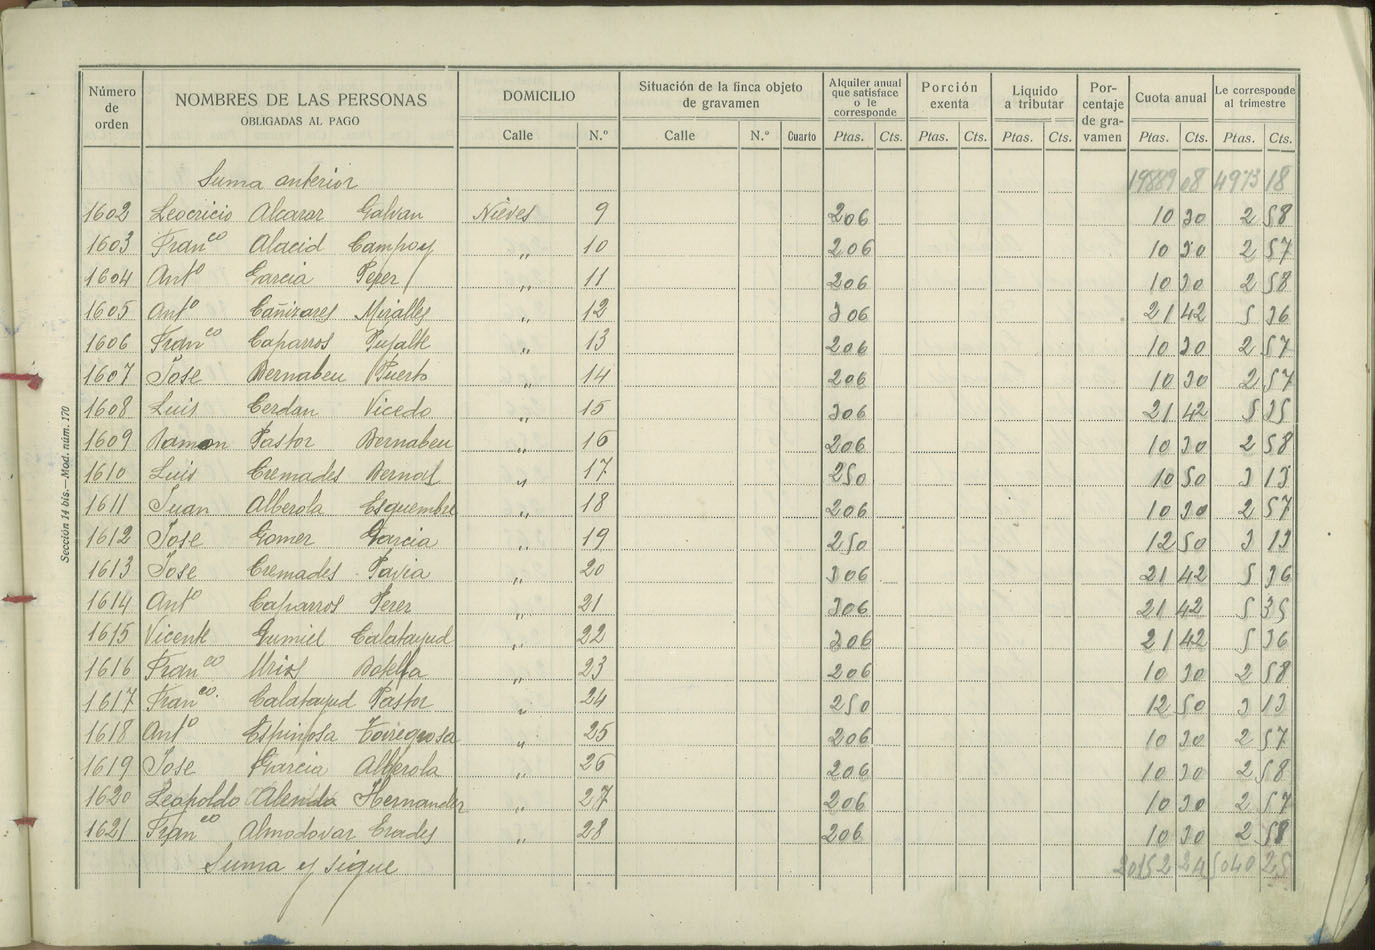 Número de orden | NOMBRES DE LAS PERSONAS OBLIGADAS AL PAGO | DOMICILIO Calle N.º | Situación de la finca objeto de gravamen Calle N.º Cuarto | Alquiler anual que satisface o le corresponde Ptas. Cts. | Porción exenta Ptas. Cts. | Liquido a tributar Ptas. Cts. | Por-centaje de gra-vamen | Cuota anual Ptas. Cts. | Le corresponde al trimestre Ptas. Cts.
Suma anterior 19889 08 4973 18
1602 Leocricio Alcaraz Galvan Nieves 9 206 10 30 2 58
1603 Franco Alacid Campoy " 10 206 10 30 2 57
1604 Anto Garcia Perez " 11 206 10 30 2 58
1605 Anto Cañizares Miralles " 12 306 21 42 5 36
1606 Franco Caparros Pujalte " 13 206 10 30 2 57
1607 Jose Bernabeu Puerto " 14 206 10 30 2 57
1608 Luis Cerdan Vicedo " 15 306 21 42 5 35
1609 Ramon Pastor Bernabeu " 16 206 10 30 2 58
1610 Luis Cremades Bernal " 17 250 10 50 3 13
1611 Juan Alberola Esquembre " 18 206 10 30 2 57
1612 Jose Gomez Garcia " 19 250 12 50 3 13
1613 Jose Cremades Pavia " 20 306 21 42 5 36
1614 Anto Caparros Perez " 21 306 21 42 5 35
1615 Vicente Gumiel Calatayud " 22 306 21 42 5 36
1616 Franco Urios Botella " 23 206 10 30 2 58
1617 Franco. Calatayud Pastor " 24 250 12 50 3 13
1618 Anto Espinosa Torregrosa " 25 206 10 30 2 57
1619 Jose Garcia Alberola " 26 206 10 30 2 58
1620 Leopoldo Alenda Hernandez " 27 206 10 30 2 57
1621 Franco Almodovar Erades " 28 206 10 30 2 58
Suma y sigue 20152 24 5040 25
Sección 14 bis.—Mod. núm. 170